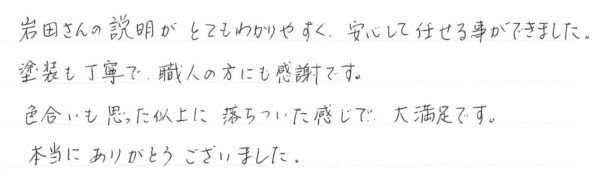 岩田さんの説明が とてもわかりやすく、安心して任せる事ができました。
塗装も丁寧で、職人の方にも感謝です。
色合いも思った以上に 落ちついた感じで、大満足です。
本当に ありがとう ございました。